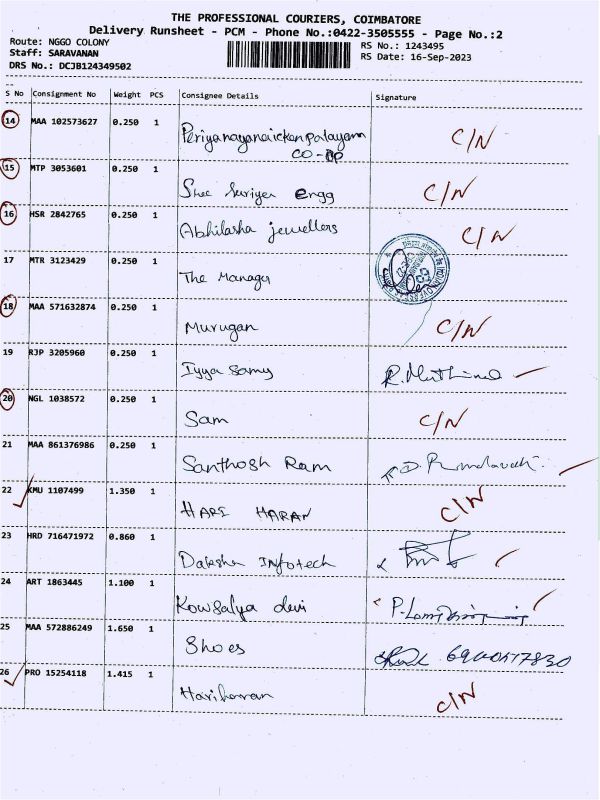 THE PROFESSIONAL COURIERS, COIMBATORE
Delivery Runsheet - PCM - Phone No.:0422-3505555 - Page No.:2
Route: NGGO COLONY
Staff: SARAVANAN
DRS No.: DCJB124349502
RS No.: 1243495
RS Date: 16-Sep-2023
S No Consignment No Weight PCS Consignee Details Signature
14 MAA 102573627 0.250 1 Periyanayanaickenpalayam CO-OP C/N
15 MTP 3053601 0.250 1 Shee Suriya engg C/N
16 HSR 2842765 0.250 1 Abhilasha jewellers C/N
17 MTR 3123429 0.250 1 The Manager
18 MAA 571632874 0.250 1 Murugan C/N
19 RJP 3205960 0.250 1 Iyya Samy
20 NGL 1038572 0.250 1 Sam C/N
21 MAA 861376986 0.250 1 Santhosh Ram
22 KMU 1107499 1.350 1 HARI HARAN C/N
23 HRD 716471972 0.860 1 Daksha Infotech
24 ART 1863445 1.100 1 Kowsalya devi
25 MAA 572886249 1.650 1 Shoes
26 PRO 15254118 1.415 1 Hariharan C/N